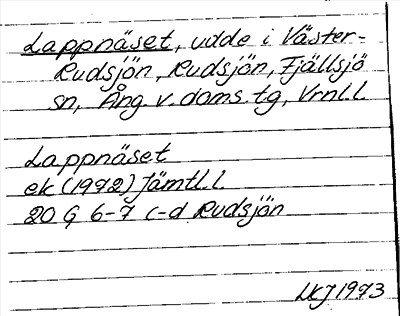 Lappnäset, udde i Väster-
Rudsjön, Rudsjön, Fjällsjö
sn, Ång. v. doms. tg, Vrnl. l.
Lappnäset
ek (1972) Jämtl. l.
20 G 6-7 c-d Rudsjön
LKJ 1973